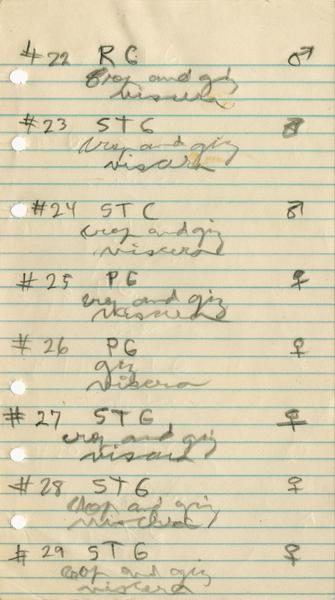 #22 RG ♂
Crop and giz
viscera
#23 STG ♂
crop and giz
viscera
#24 STC ♂
crop and giz
viscera
#25 PG ♀
crop and giz
viscera
#26 PG ♀
giz
viscera
#27 STG ♀
crop and giz
viscera
#28 STG ♀
crop and giz
viscera
#29 STG ♀
crop and giz
viscera